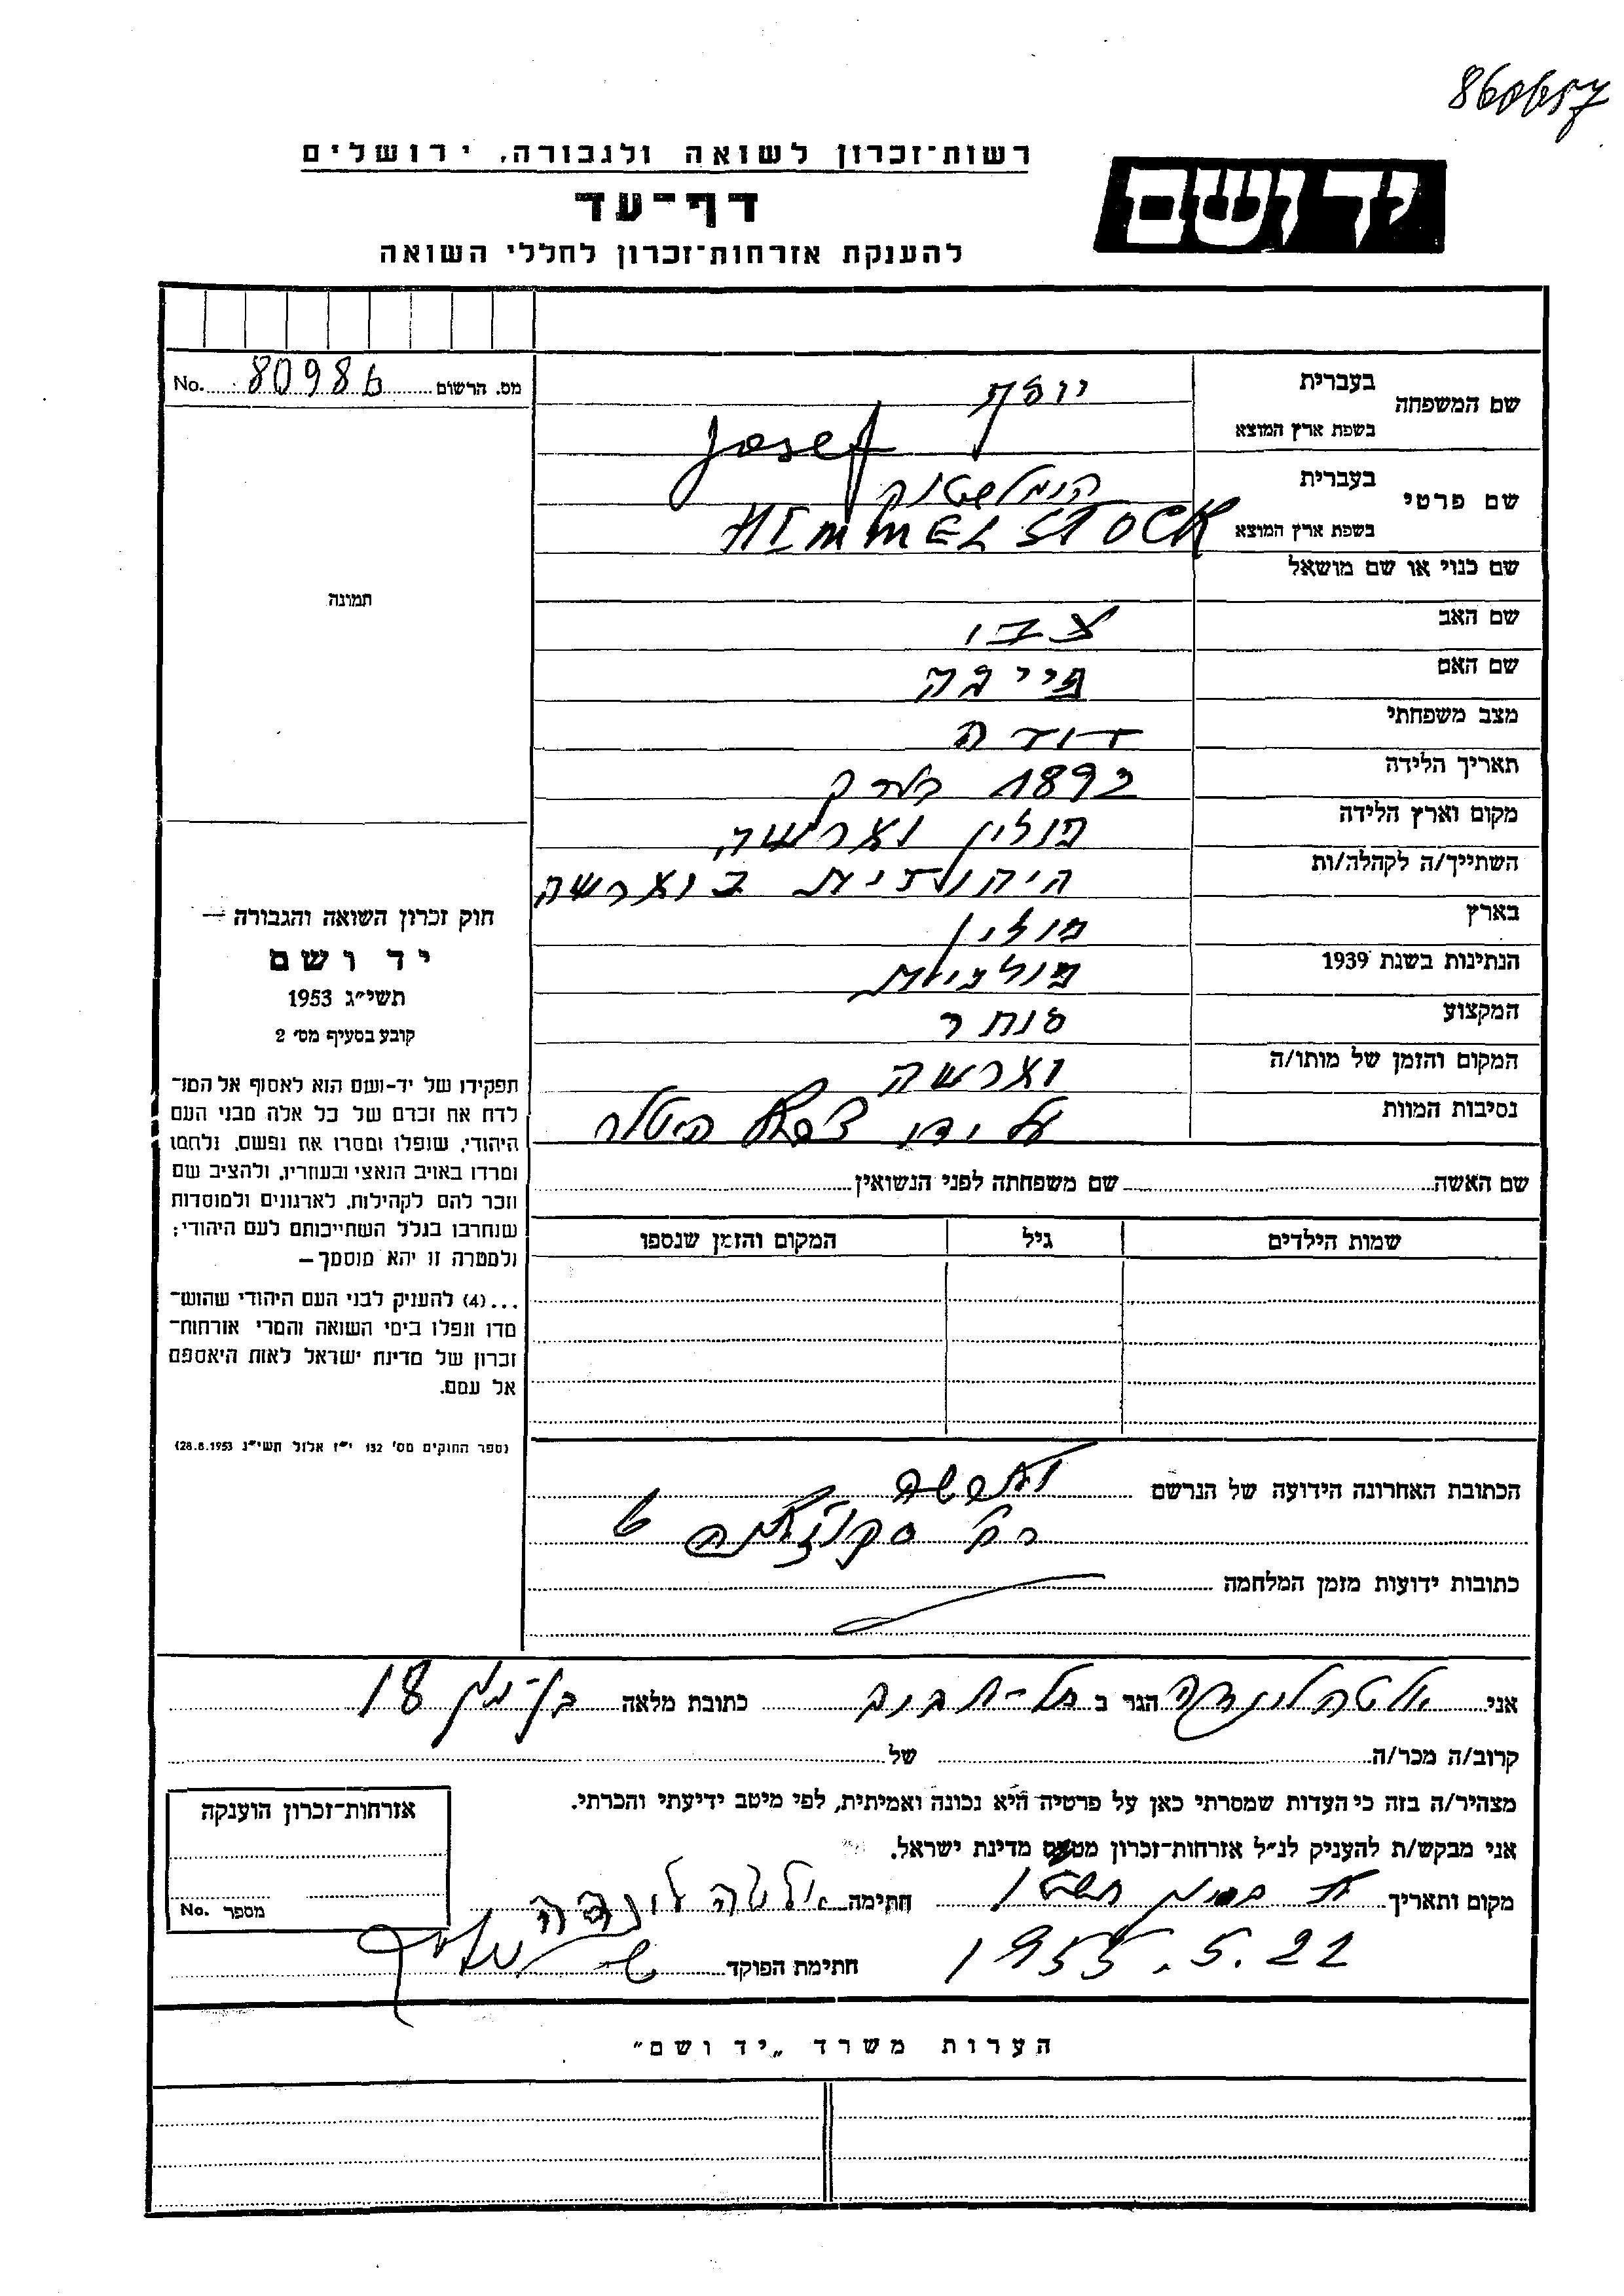 860657
רשות־זכרון לשואה ולגבורה, ירושלים
יד ושם
דף־עד
להענקת אזרחות־זכרון לחללי השואה
מס. הרשום 80986 No.
שם המשפחה בעברית יוסף
בשפת ארץ המוצא Josef
שם פרטי בעברית הימלשטוק
בשפת ארץ המוצא HIMMELSTOCK
שם כנוי או שם מושאל
שם האב צבי
שם האם פייגה
מצב משפחתי
תאריך הלידה 1892
מקום וארץ הלידה פולין ווארשה
השתייך/ה לקהלה/ות היהודית בווארשה
בארץ פולין
הנתינות בשנת 1939 פולנית
המקצוע סוחר
המקום והזמן של מותו/ה ווארשה
נסיבות המוות על ידי היטלר
תמונה
חוק זכרון השואה והגבורה —
יד ושם
תשי״ג 1953
קובע בסעיף מס׳ 2
תפקידו של יד-ושם הוא לאסוף אל המו־
לדת את זכרם של כל אלה מבני העם
היהודי, שנפלו ומסרו את נפשם, נלחמו
ומרדו באויב הנאצי ובעוזריו, ולהציב שם
וזכר להם לקהילות, לארגונים ולמוסדות
שנחרבו בגלל השתייכותם לעם היהודי;
ולמטרה זו יהא מוסמך—
...(4) להעניק לבני העם היהודי שהוש־
מדו ונפלו בימי השואה והמרי אזרחות־
זכרון של מדינת ישראל לאות היאספם
אל עמם.
(ספר החוקים מס׳ 132 י״ז אלול תשי״ג 28.8.1953)
שם האשה שם משפחתה לפני הנשואין
שמות הילדים גיל המקום והזמן שנספו
הכתובת האחרונה הידועה של הנרשם ווארשה
רח׳ 6
כתובות ידועות מזמן המלחמה
אני אלטה לונדה הגר ב תל-אביב כתובת מלאה 18
קרוב/ה מכר/ה של
מצהיר/ה בזה כי העדות שמסרתי כאן על פרטיה היא נכונה ואמיתית, לפי מיטב ידיעתי והכרתי.
אני מבקש/ת להעניק לנ״ל אזרחות־זכרון מטעם מדינת ישראל.
מקום ותאריך חתימה אלטה לונדה
22.5.1955
חתימת הפוקד
אזרחות־זכרון הוענקה
מספר No.
הערות משרד „יד ושם״